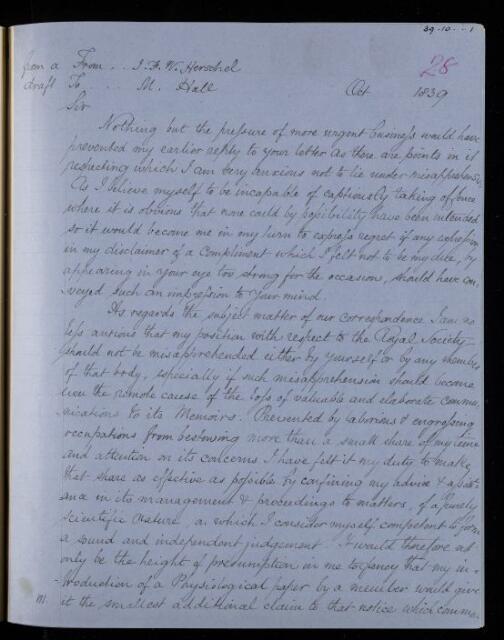 39-10- - -1
28
from a From . . J. F. W. Herschel
draft To . . . M. Hall
Oct 1839
Sir
Nothing but the pressure of more urgent business would have
prevented my earlier reply to your letter as there are points in it
respecting which I am very anxious not to lie under misapprehension.
As I believe myself to be incapable of captiously taking offence
where it is obvious that none could by possibility have been intended
so it would become me in my turn to express regret if any expression
in my disclaimer of a Compliment which I felt not to be my due, by
appearing in your eye too strong for the occasion, should have con-
veyed such an impression to your mind.
As regards the subject matter of our correspondence I am no
less anxious that my position with respect to the Royal Society
should not be misapprehended either by yourself or by any member
of that body, especially if such misapprehension should become
even the remote cause of the loss of valuable and elaborate commu-
nications to its Memoirs. Prevented by laborious & engrossing
occupations from bestowing more than a small share of my time
and attention on its concerns I have felt it my duty to make
that share as effective as possible by confining my advice & assist-
ance in its management & proceedings to matters, of a purely
scientific nature, on which I consider myself competent to form
a sound and independent judgement. It would therefore not
only be the height of presumption in me to fancy that my in-
troduction of a Physiological paper by a member would give
it the smallest additional claim to that notice which comm
m.